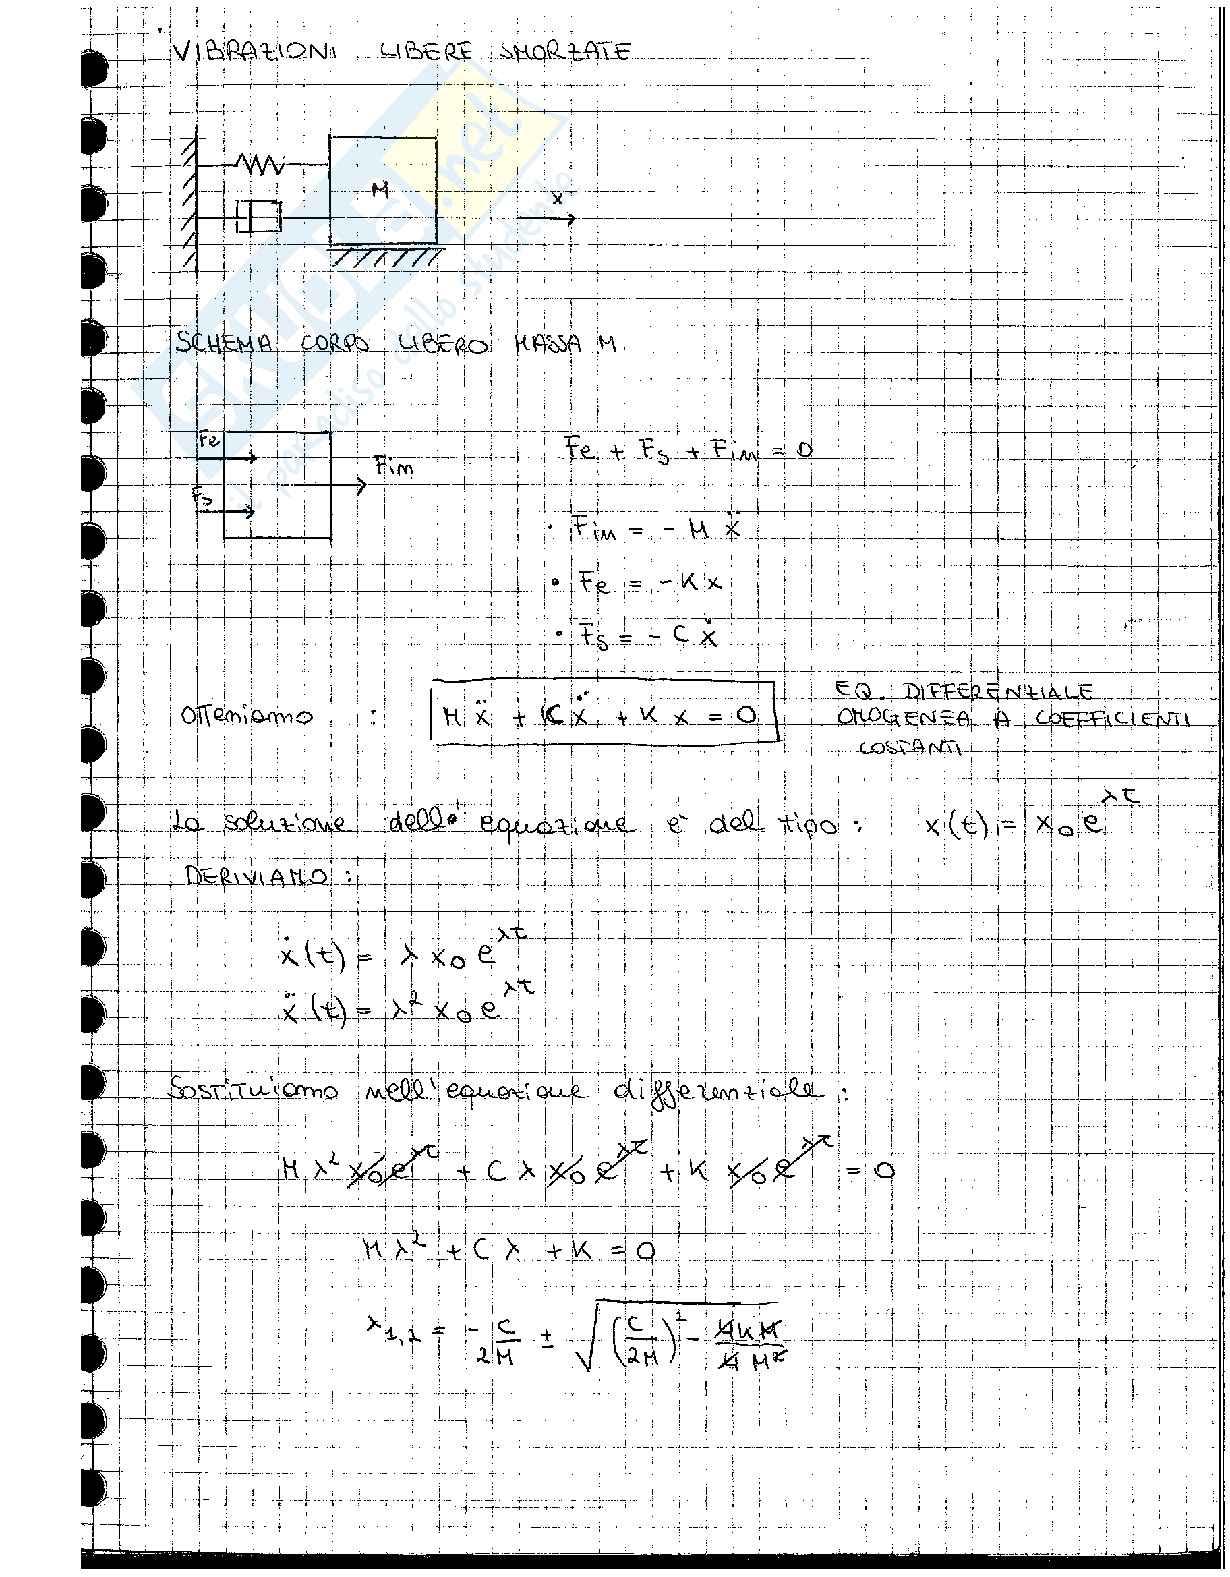 VIBRAZIONI LIBERE SMORZATE
M
x
SCHEMA CORPO LIBERO MASSA M.
Fe
Fs
Fim
Fe + Fs + Fin = 0
• Fin = - M ẍ
• Fe = - K x
• Fs = - C ẋ
Otteniamo : M ẍ + C ẍ + K x = 0
EQ. DIFFERENZIALE
OMOGENEA A COEFFICIENTI
COSTANTI
La soluzione dell' equazione è del tipo : x(t) = x₀ e^λt
DERIVIAMO :
ẋ(t) = λ x₀ e^λt
ẍ(t) = λ² x₀ e^λt
Sostituiamo nell'equazione differenziale :
M λ² x₀ e^λt + C λ x₀ e^λt + K x₀ e^λt = 0
M λ² + C λ + K = 0
λ1,2 = - C/2M ± √((C/2M)² - 4KM/4M²)
SKUOLA.net
il paradiso dello studente